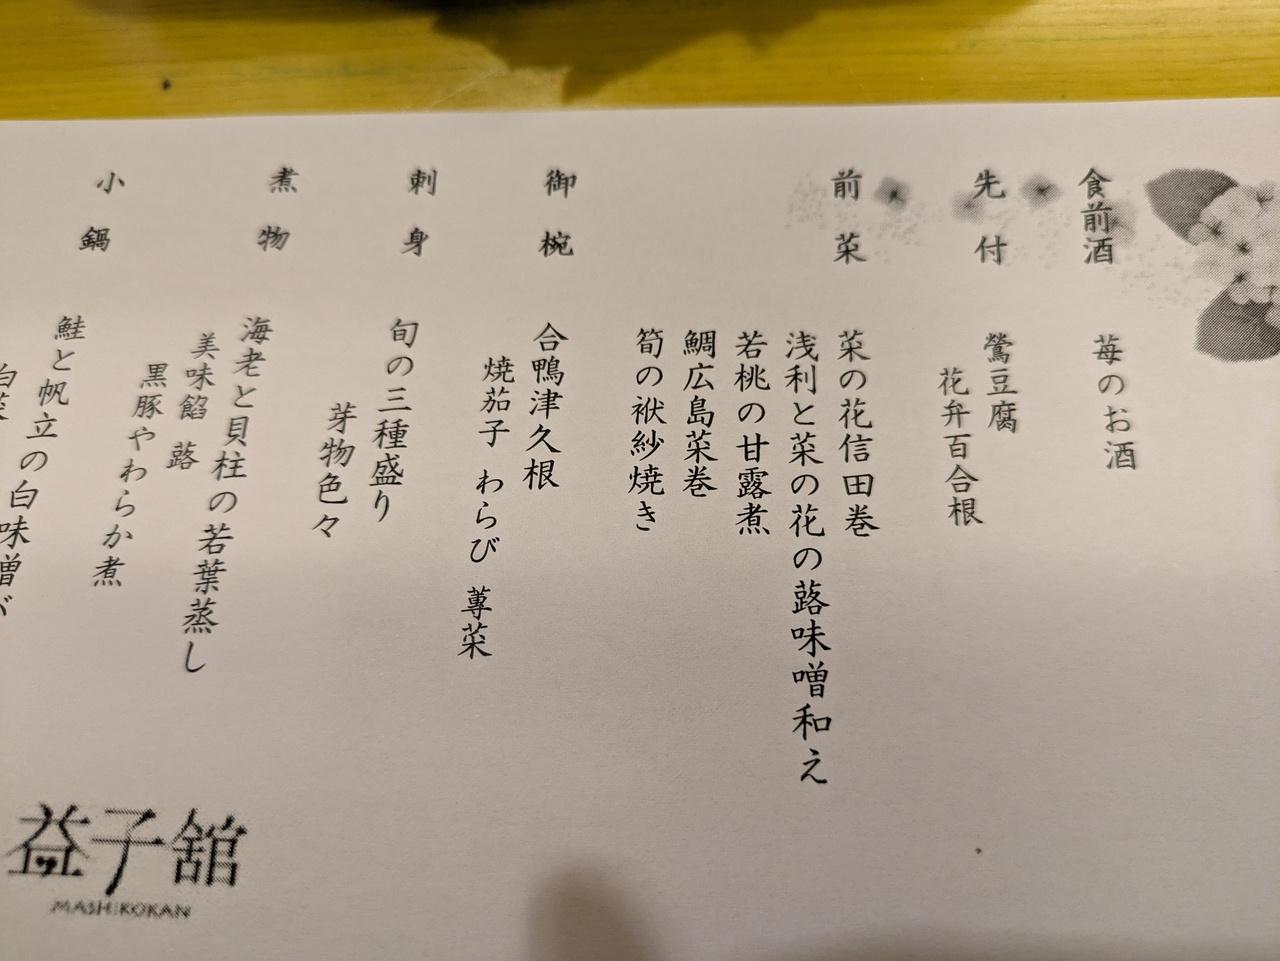 食前酒
苺のお酒
先付
鶯豆腐
花弁百合根
前菜
菜の花信田巻
浅利と菜の花の蕗味噌和え
若桃の甘露煮
鯛広島菜巻
筍の袱紗焼き
御椀
合鴨津久根
焼茄子 わらび 蓴菜
刺身
旬の三種盛り
芽物色々
煮物
海老と貝柱の若葉蒸し
美味餡 蕗
黒豚やわらか煮
小鍋
鮭と帆立の白味噌が
白菜
益子舘
MASHIKOKAN